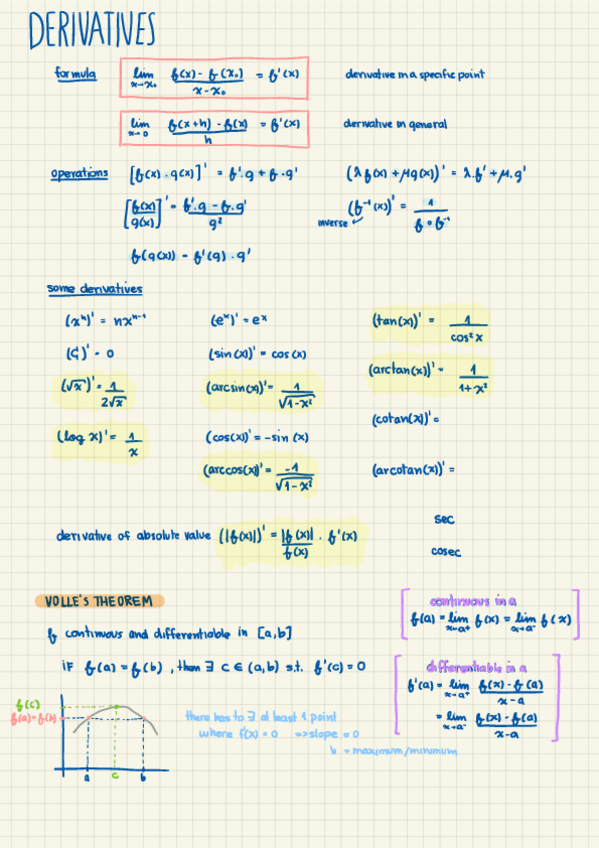 DERIVATIVES
formula lim x→x₀ f(x) - f(x₀) / x - x₀ = f'(x) derivative in a specific point
lim x→0 f(x+h) - f(x) / h = f'(x) derivative in general
operations [f(x) · g(x)]' = f'·g + f·g' (λf(x) + μg(x))' = λ·f' + μ·g'
[f(x) / g(x)]' = f'·g - f·g' / g² (f⁻¹(x))' = 1 / f∘f⁻¹
inverse
f(g(x)) = f'(g) · g'
some derivatives
(xⁿ)' = nxⁿ⁻¹ (eˣ)' = eˣ (tan(x))' = 1 / cos²x
(C)' = 0 (sin(x))' = cos(x) (arctan(x))' = 1 / 1+x²
(√x)' = 1 / 2√x (arcsin(x))' = 1 / √1-x² (cotan(x))' =
(log x)' = 1 / x (cos(x))' = -sin(x) (arcotan(x))' =
(arccos(x))' = -1 / √1-x²
sec
derivative of absolute value (|f(x)|)' = |f(x)| / f(x) · f'(x)
cosec
VOLLE'S THEOREM
f continuous and differentiable in [a,b]
if f(a) = f(b), then ∃ c ∈ (a,b) s.t. f'(c) = 0
continuous in a
f(a) = lim x→a⁺ f(x) = lim x→a⁻ f(x)
differentiable in a
f'(a) = lim x→a⁺ f(x) - f(a) / x-a
= lim x→a⁻ f(x) - f(a) / x-a
f(c)
f(a)=f(b)
a c b
there has to ∃ at least 1 point
where f'(x) = 0 ⇒ slope = 0
= maximum/minimum